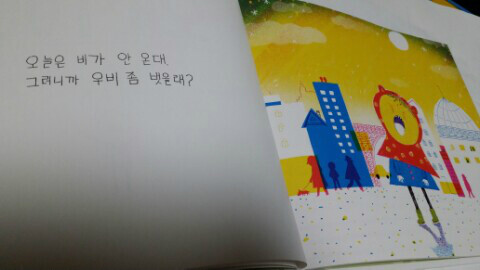 오늘은 비가 안 온대.
그러니까 우비 좀 벗을래?